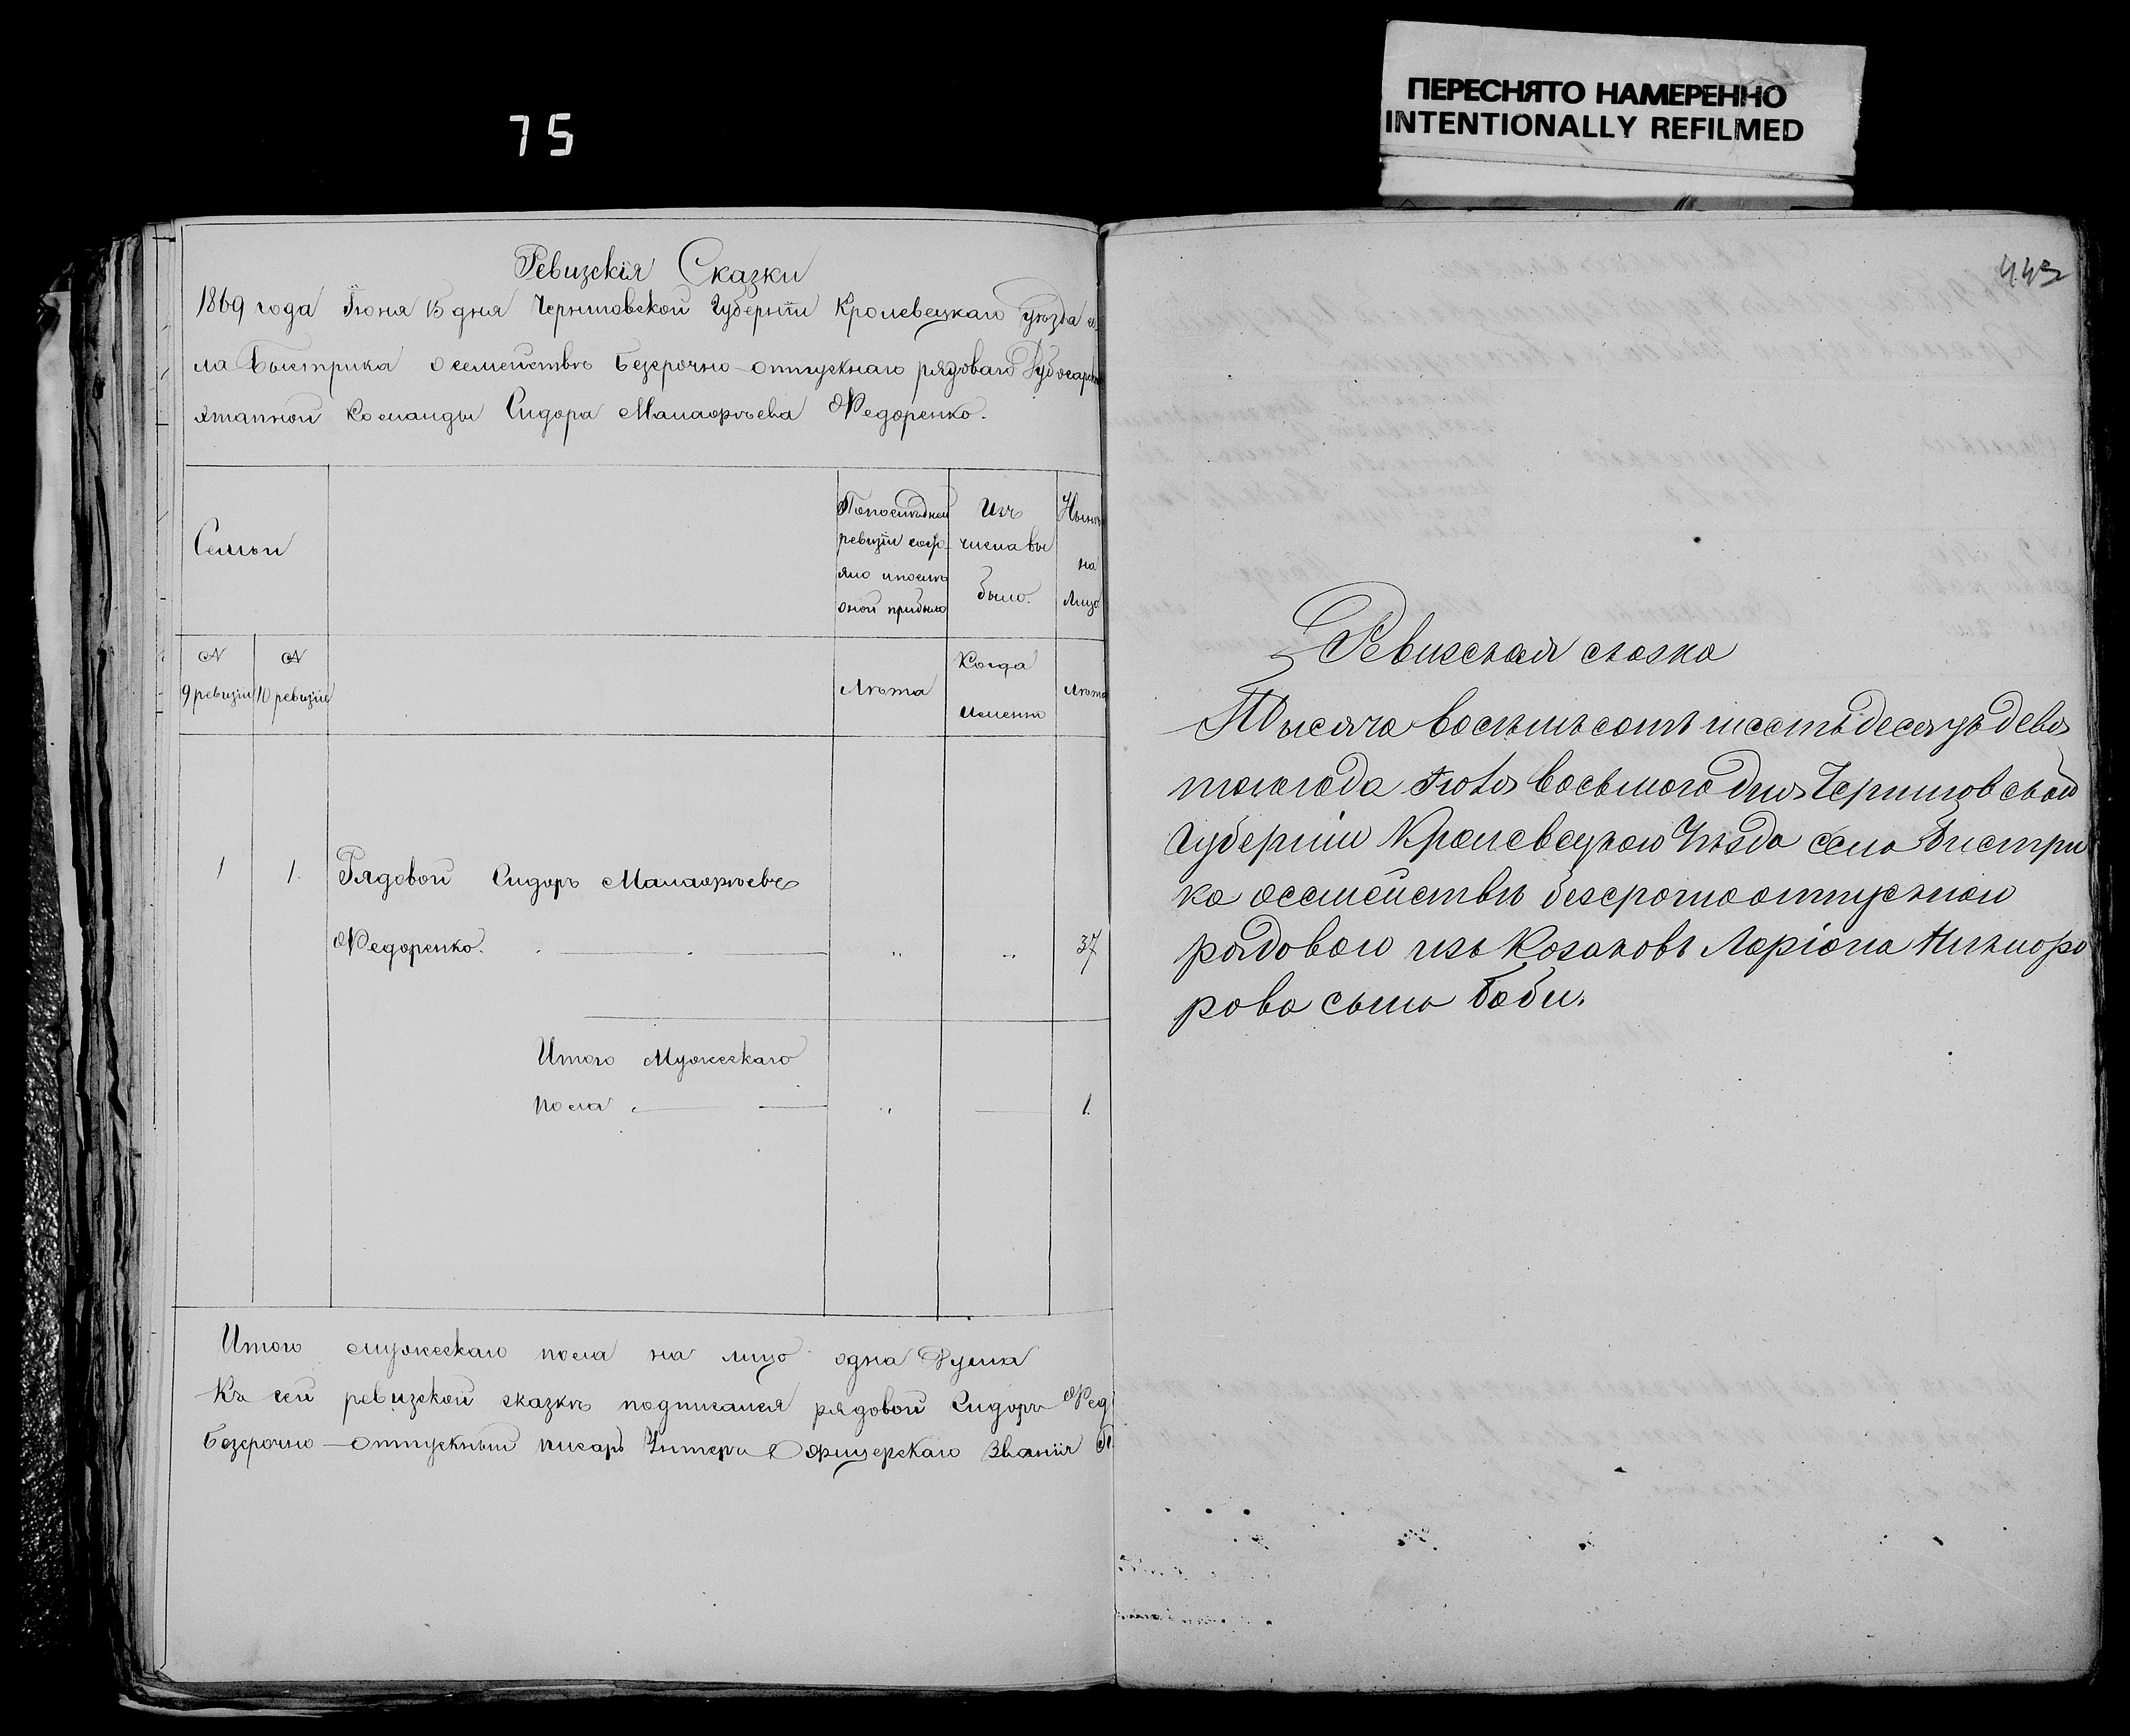 75
ПЕРЕСНЯТО НАМЕРЕННО
INTENTIONALLY REFILMED
Ревизскія Сказки
1869 года Іюня 15 дня Черниговской Губерніи Кролевецкаго уѣзда се
ла Быстрика о семействѣ безсрочно-отпускнаго рядоваго
этапной команды Сидора Малафѣева Федоренко.
Семьи
По последней
ревизіи состо
яло и после
оной прибыло
Изъ
числа вы
было.
Нынѣ
на
лицо
№
9 ревизіи
№
10 ревизіи
Лѣта
Когда
именно
Лѣта
1 1. Рядовой Сидоръ Малафѣевъ
Федоренко. „ „ 37
Итого Мужескаго
пола „ 1.
Итого мужескаго пола на лицо одна душа
Къ сей ревизской сказкѣ подписался рядовой Сидоръ Фед
Безсрочно-отпускный писарь Унтеръ Офицерскаго званія
443
Ревизская сказка
Тысяча восемьсотъ шестьдесятъ девя
таго года восьмого дня Черниговской
Губерніи Кролевецкаго Уѣзда села Бистри
ка о семействѣ безсрочно отпускнаго
рядоваго изъ Козаковъ Ларіона
рова сына Баби.